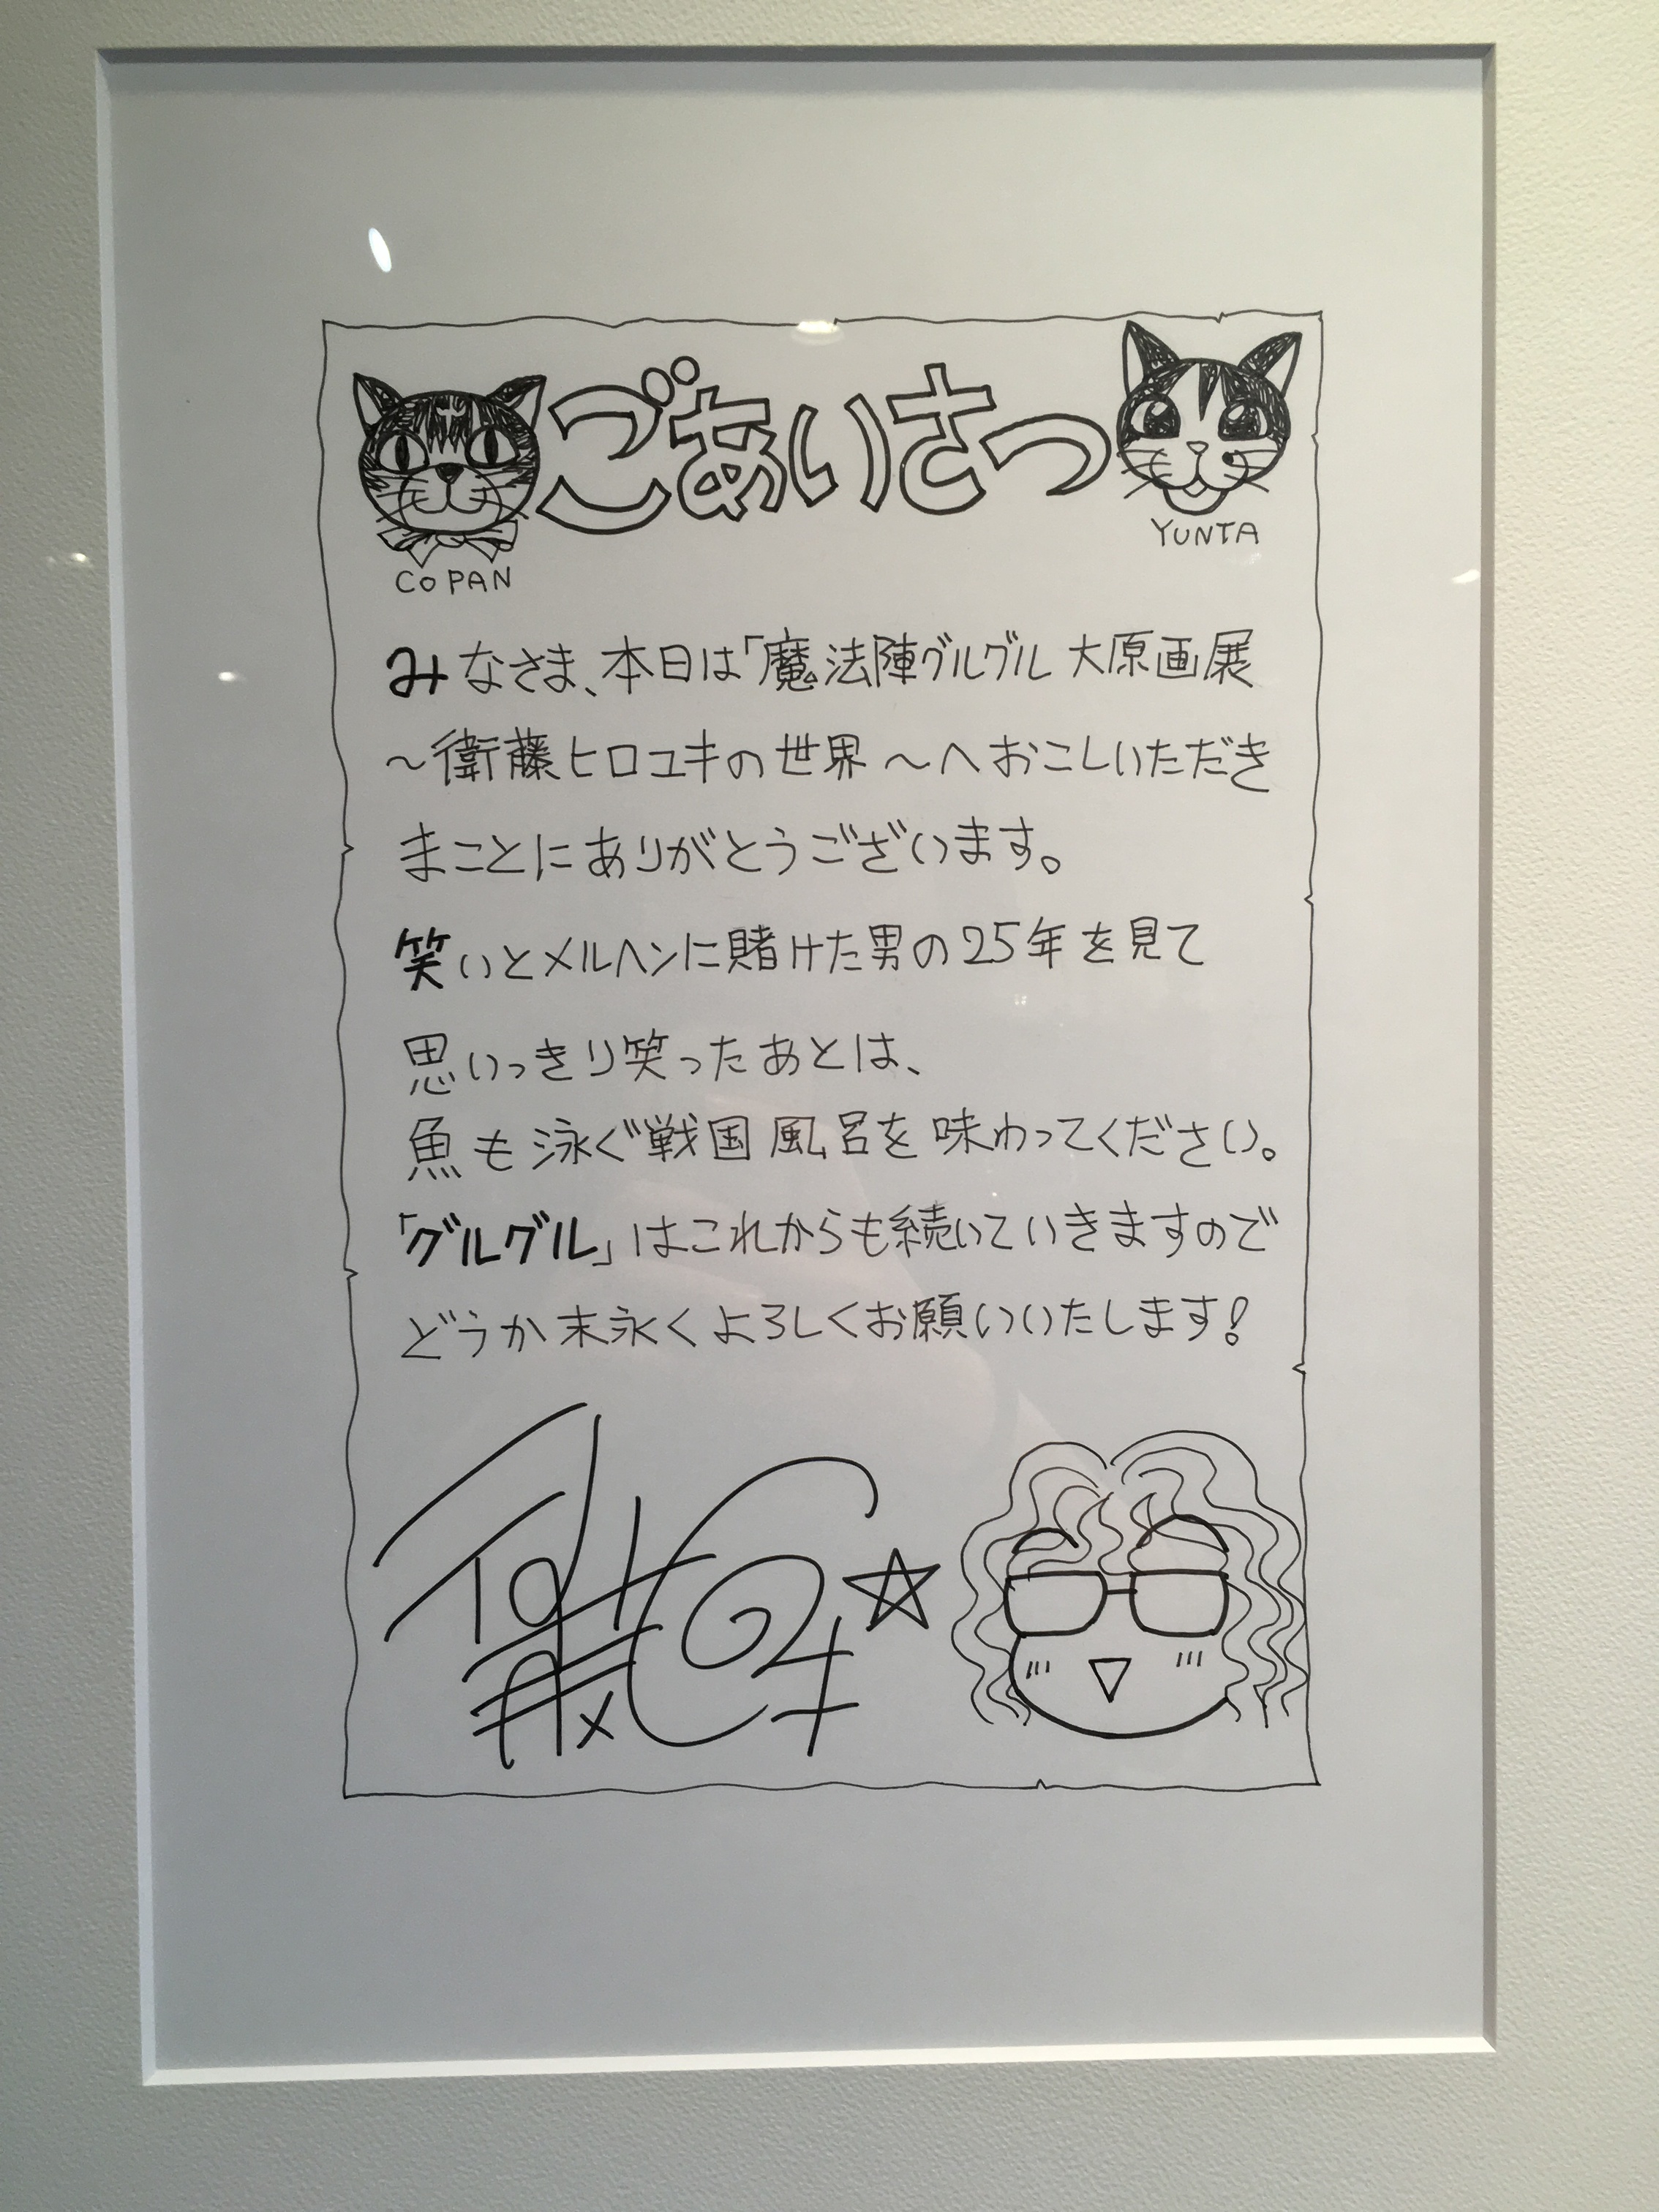 ごあいさつ
COPAN
YUNTA
みなさま、本日は「魔法陣グルグル 大原画展
～衛藤ヒロユキの世界～へおこしいただき
まことにありがとうございます。
笑いとメルヘンに賭けた男の25年を見て
思いっきり笑ったあとは、
魚も泳ぐ戦国風呂を味わってください。
「グルグル」はこれからも続いていきますので
どうか末永くよろしくお願いいたします!